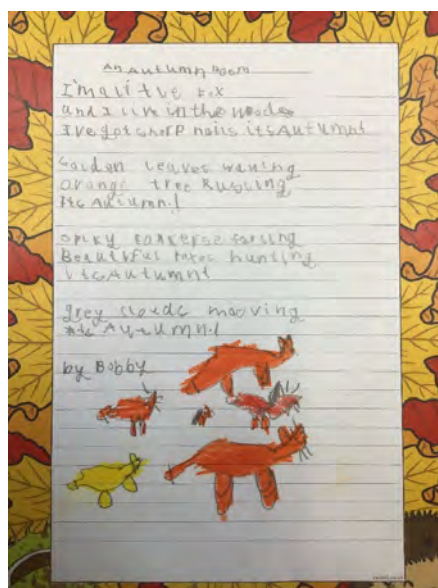 An Autumn Poem
I'm a little fox
and I live in the woods
I've got sharp nails its Autumn!
Golden leaves waving
orange tree Rusling
its Autumn!
spiky conkerse falling
Beautiful foxes hunting
itsAutumn!
grey clouds mooving
its Autumn!
by Bobby